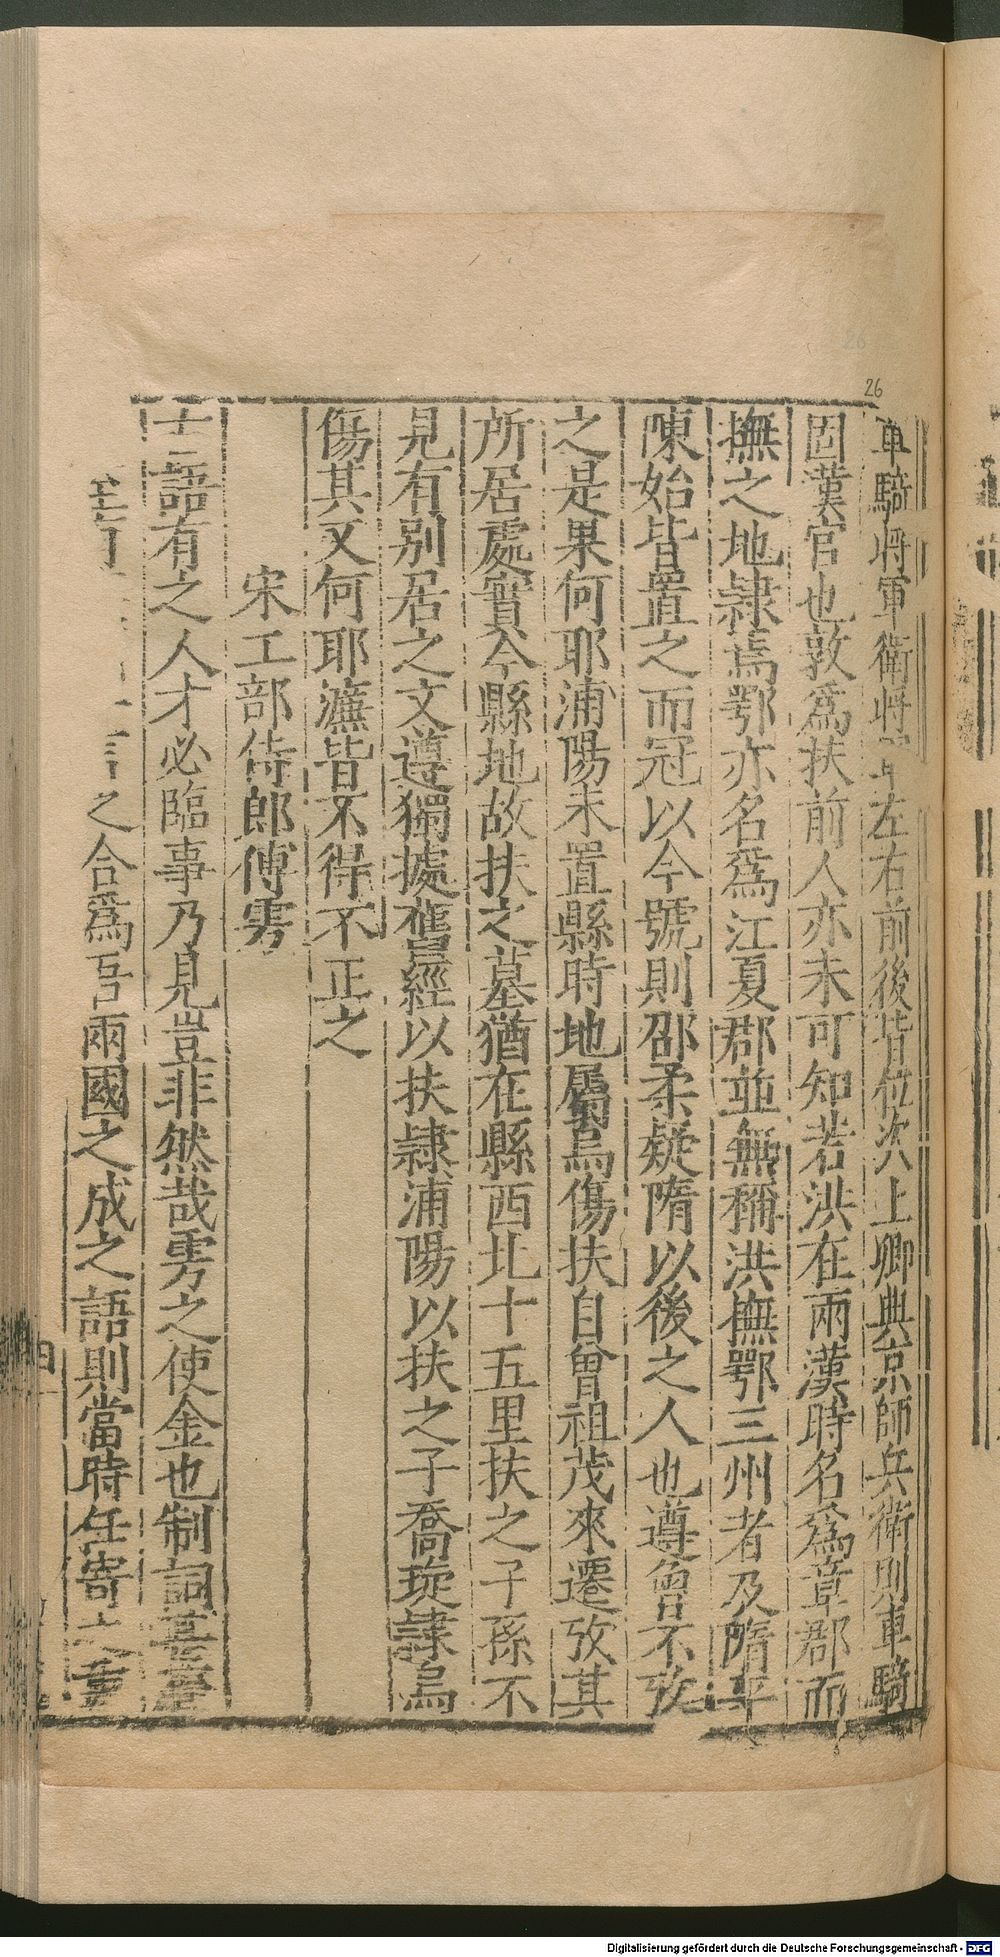 26
車騎將軍衛將軍左右前後皆位次上卿典京師兵衛則車騎
固漢官也敦爲扶前人亦未可知若洪在兩漢時名爲章郡而
撫之地隷焉鄂亦名爲江夏郡並無稱洪撫鄂三州者及隋平
陳始皆置之而冠以今號則邵柔疑隋以後之人也遵曾不攷
之是果何耶浦陽未置縣時地屬烏傷扶自曾祖茂來遷攷其
所居處實今縣地故扶之墓猶在縣西北十五里扶之子孫不
見有別居之文遵獨據舊經以扶隷浦陽以扶之子喬琁隷烏
傷其又何耶濂皆不得不正之
宋工部侍郎傅雱
士語有之人才必臨事乃見豈非然哉雱之使金也制詞
言之合爲吾兩國之成之語則當時任寄之重
Digitalisierung gefördert durch die Deutsche Forschungsgemeinschaft - DFG